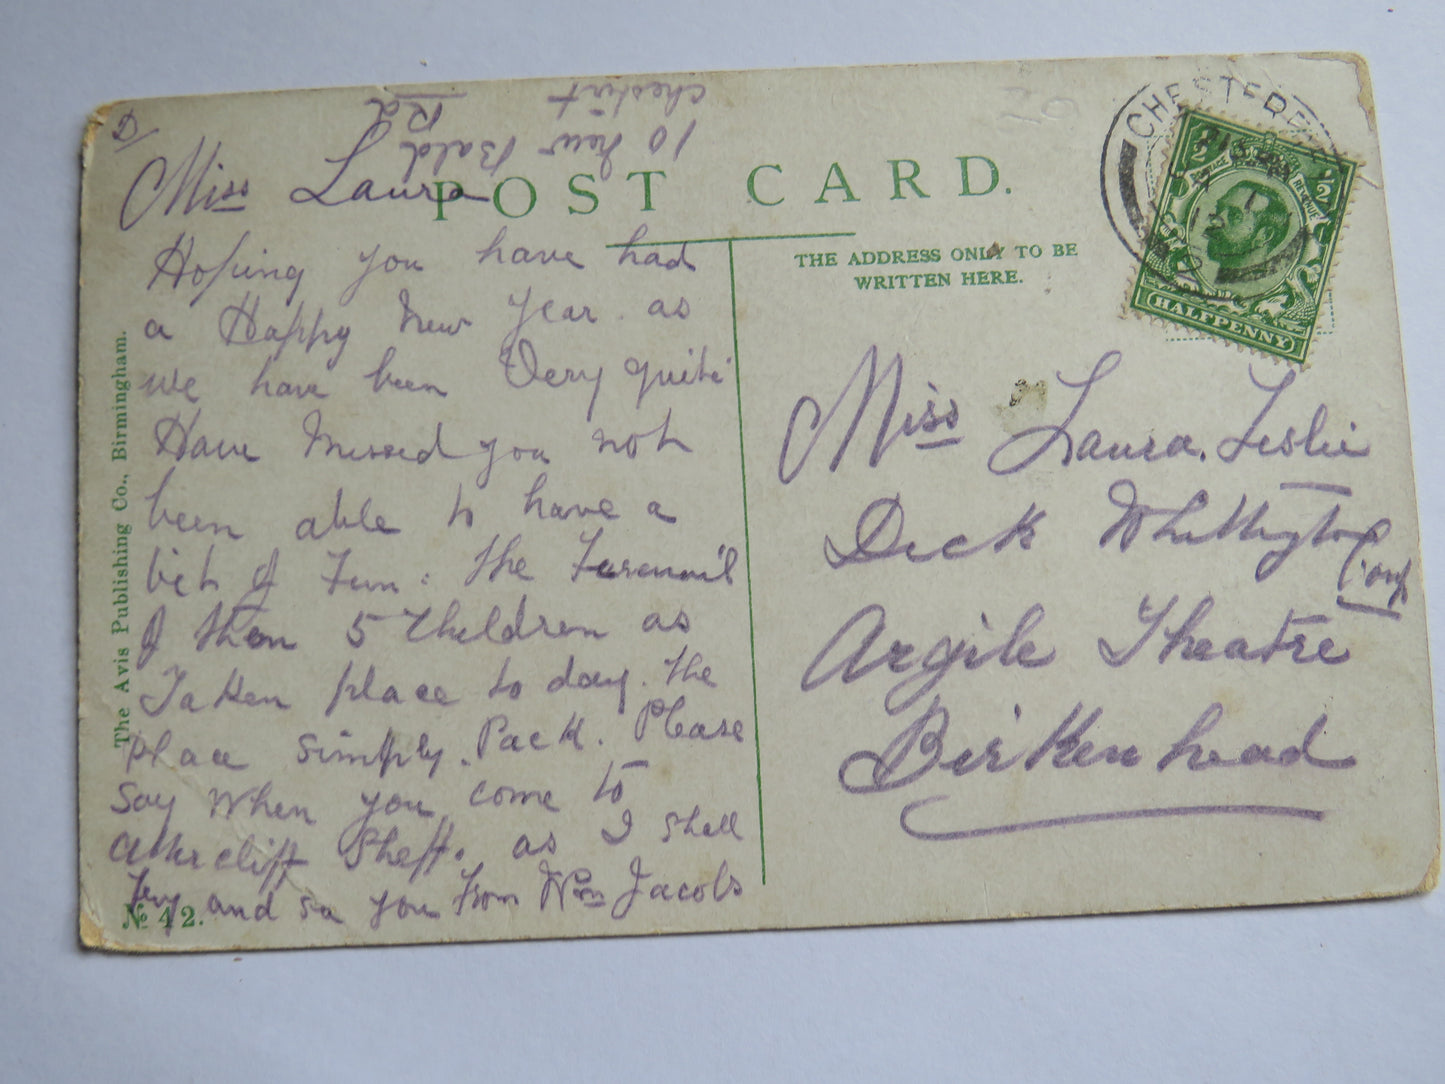 10 New Bald
Rd
Chesterf
Miss Laura
POST CARD.
Hoping you have had
a Happy New Year. as
we have been Very quite
Have Missed you not
been able to have a
bit of Fun. The Funerail
of then 5 Children as
Taken place to day. the
place simply. Pack. Please
say when you come to
Attercliff Sheff. as I shall
Try and se you From Wm Jacobs
The Avis Publishing Co., Birmingham.
No 42.
THE ADDRESS ONLY TO BE
WRITTEN HERE.
CHESTERF
HALFPENNY
Miss Laura. Leslie
Dick Whittington
Comp
Argile Theatre
Birkenhead